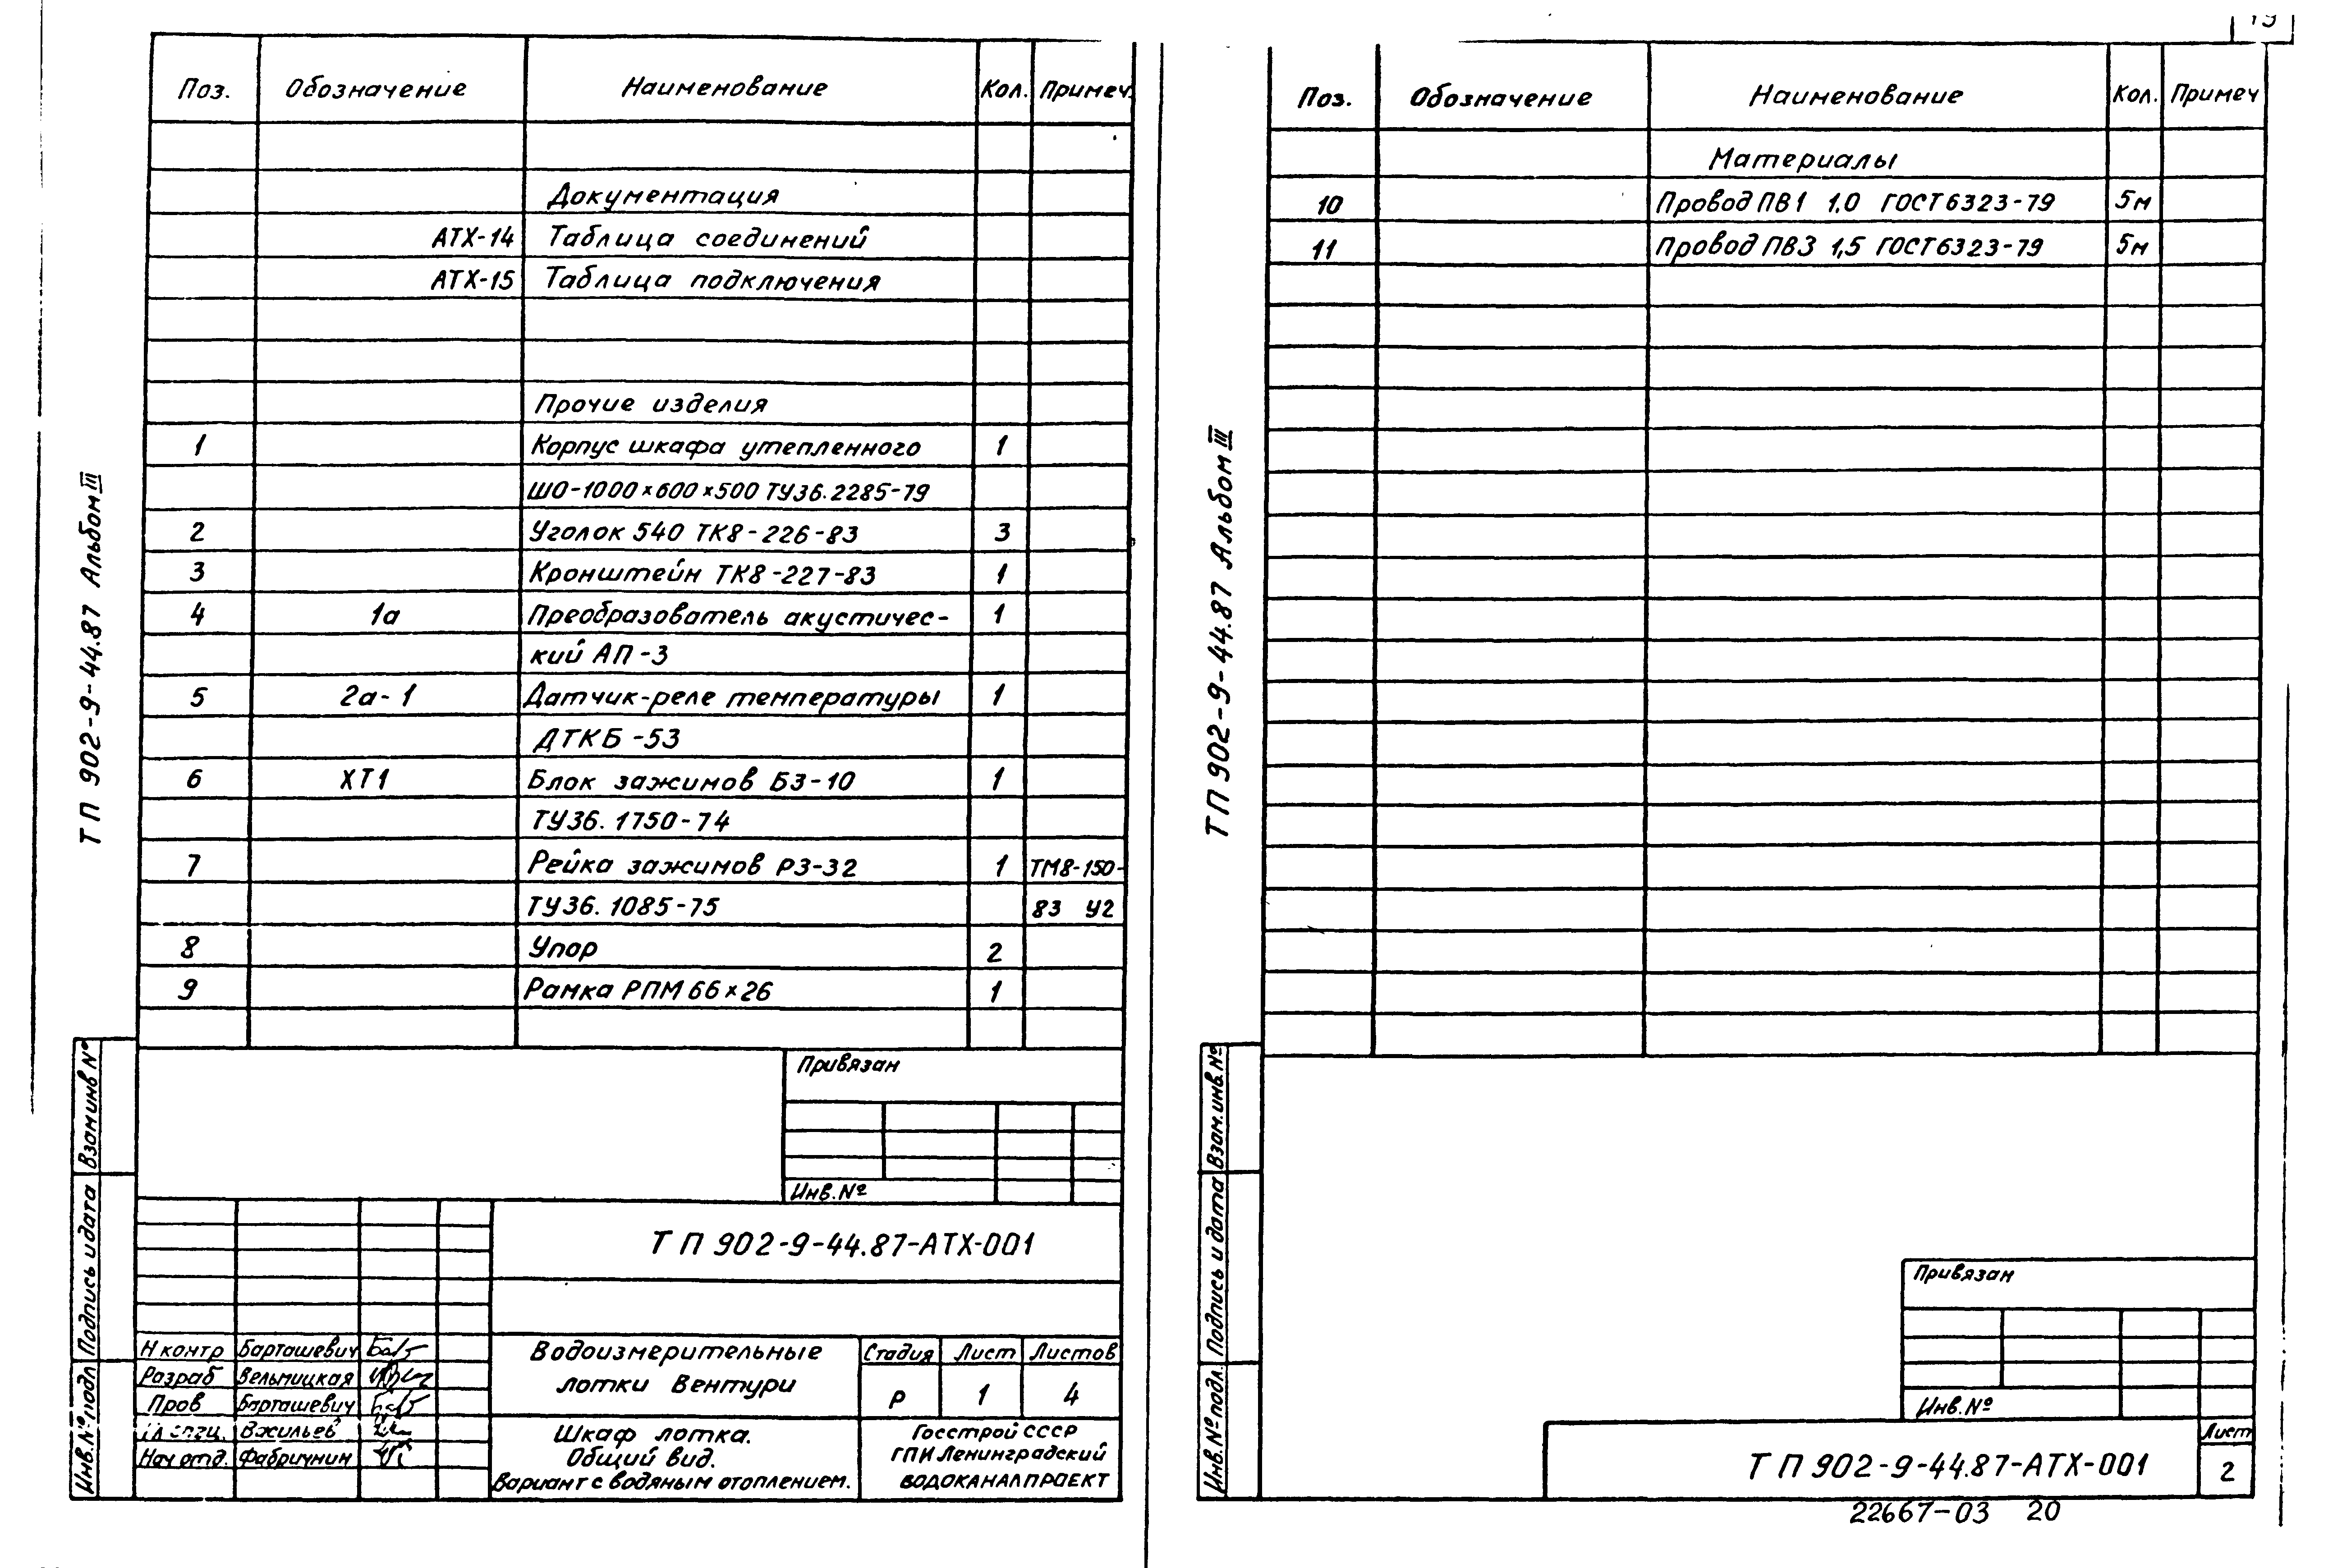 Поз. Обозначение Наименование Кол. Примеч.
Документация
АТХ-14 Таблица соединений
АТХ-15 Таблица подключения
Прочие изделия
1 Корпус шкафа утепленного 1
ШО-1000×600×500 ТУ36.2285-79
2 Уголок 540 ТК8-226-83 3
3 Кронштейн ТК8-227-83 1
4 1а Преобразователь акустичес- 1
кий АП-3
5 2а-1 Датчик-реле температуры 1
ДТКБ-53
6 ХТ1 Блок зажимов БЗ-10 1
ТУ36.1750-74
7 Рейка зажимов РЗ-32 1 ТМ8-150-
ТУ36.1085-75 83 У2
8 Упор 2
9 Рамка РПМ 66×26 1
Привязан
Инв.№
ТП 902-9-44.87-АТХ-001
Н контр Барташевич
Разраб Вельницкая
Пров Барташевич
Гл спец. Васильев
Нач отд. Фабричнин
Водоизмерительные
лотки Вентури
Стадия Лист Листов
Р 1 4
Шкаф лотка.
Общий вид.
Вариант с водяным отоплением.
Госстрой СССР
ГПИ Ленинградский
ВОДОКАНАЛПРОЕКТ
ТП 902-9-44.87 Альбом III
Взам инв №
Подпись и дата
Инв.№ подл
19
Поз. Обозначение Наименование Кол. Примеч
Материалы
10 Провод ПВ1 1,0 ГОСТ 6323-79 5м
11 Провод ПВ3 1,5 ГОСТ 6323-79 5м
Привязан
Инв.№
ТП 902-9-44.87-АТХ-001
Лист
2
ТП 902-9-44.87 Альбом III
Взам.инв.№
Подпись и дата
Инв.№ подл.
22667-03 20